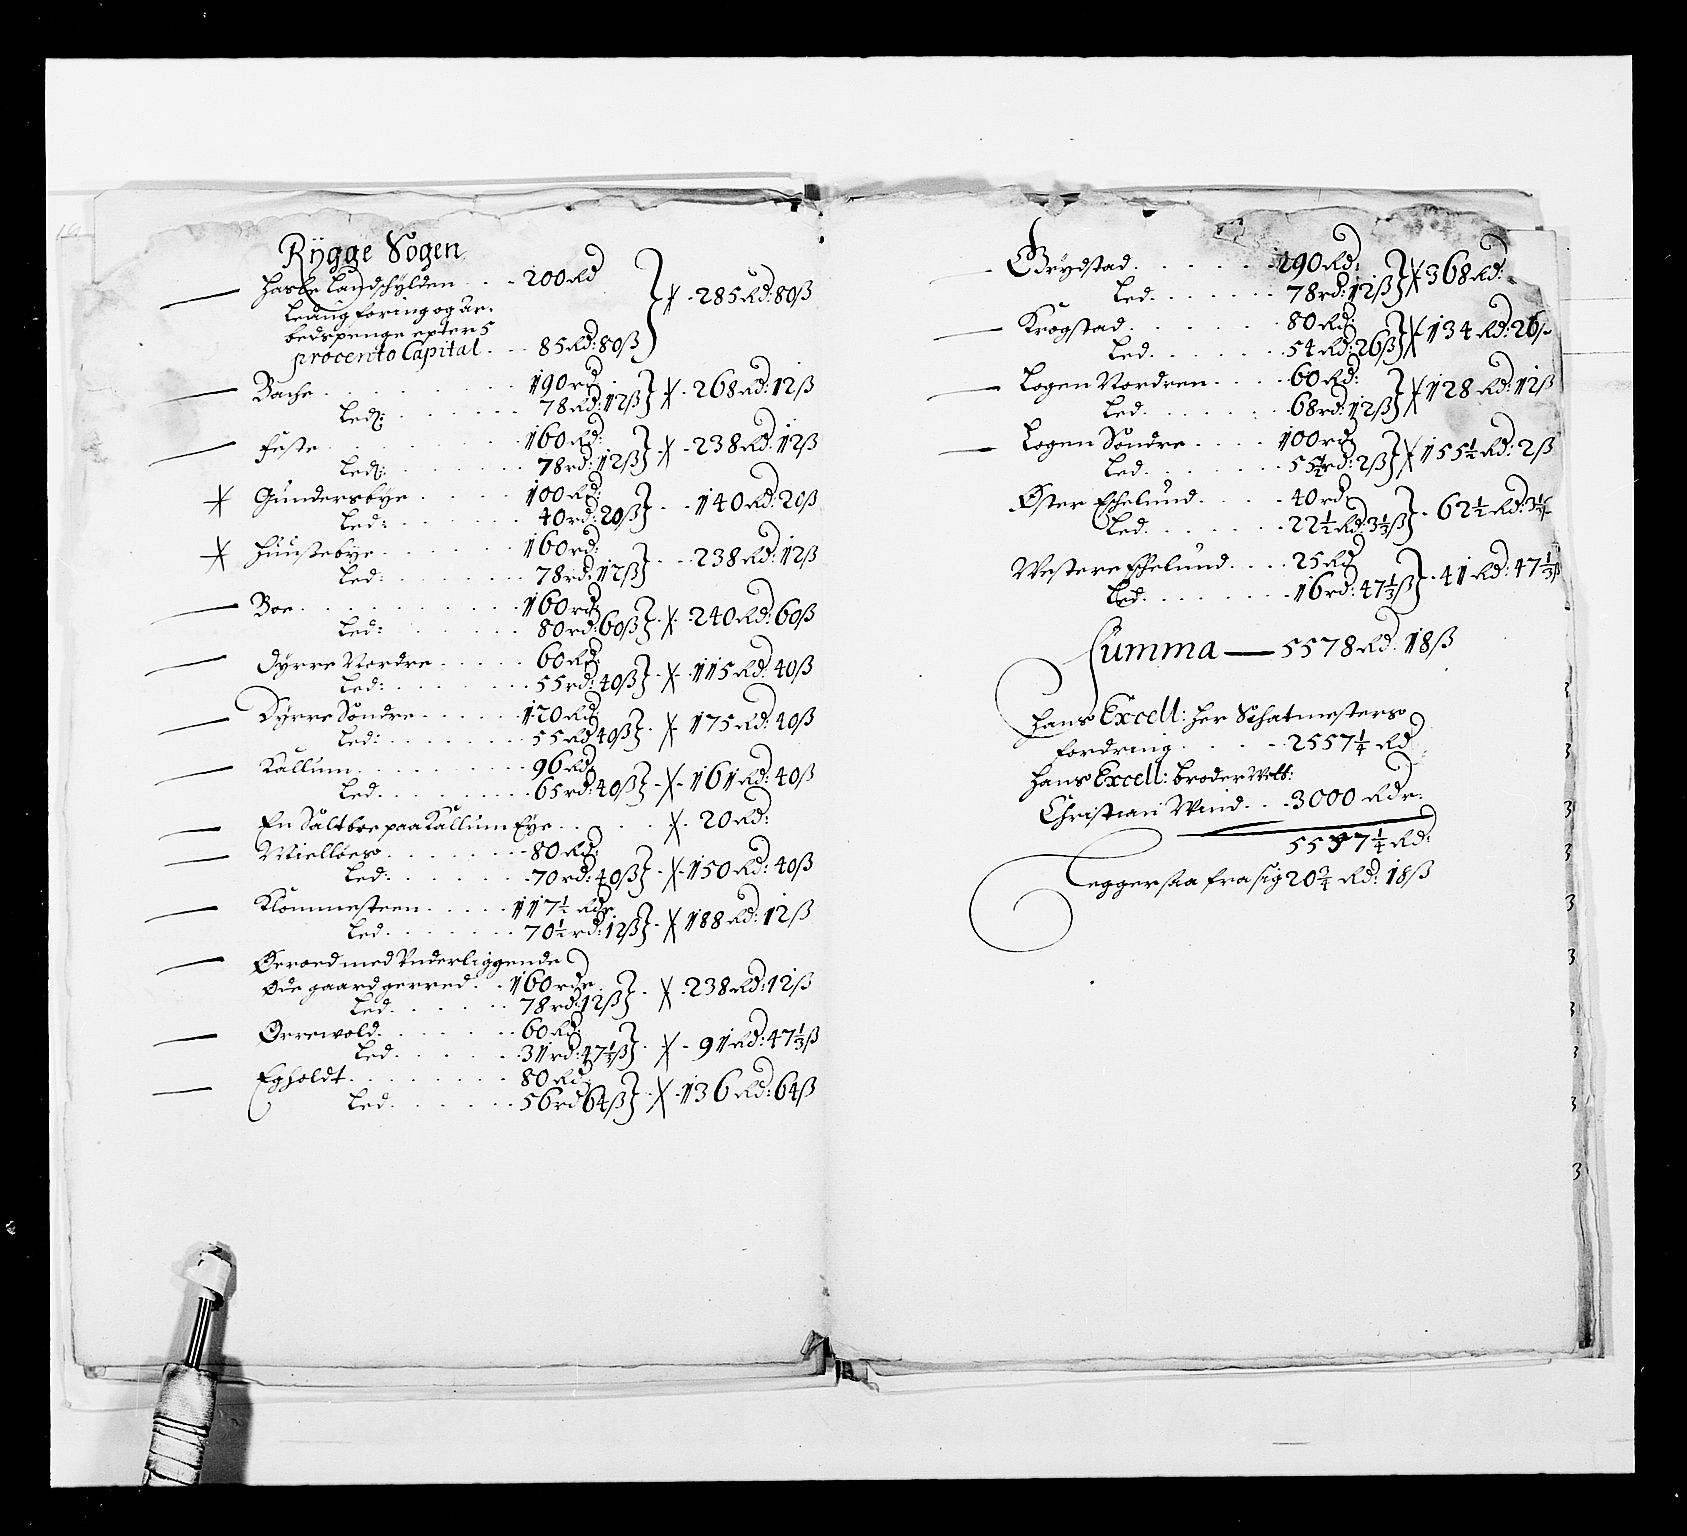 Rÿgge Sogen
Hasle Landschÿlden . . . 200 Rd
Leding foring og Ar-
bedspenge epter 5
procento Capital . . . 85 Rd: 80 ß } 285 Rd: 80 ß
Bache . . . 190 rd
Led: . . . 78 Rd: 12 ß } 268 Rd: 12 ß
Feste . . . 160 Rd:
Led: . . . 78 rd: 12 ß } 238 Rd: 12 ß
Gundersbÿe . . . 100 Rd:
Led: . . . 40 rd: 20 ß } 140 Rd: 20 ß
Huustebÿe . . . 160 rd:
Led: . . . 78 rd: 12 ß } 238 Rd: 12 ß
Boe . . . 160 rd
Led: . . . 80 rd: 60 ß } 240 Rd: 60 ß
Dÿrre Nordre . . . 60 Rd:
Led: . . . 55 rd: 40 ß } 115 Rd: 40 ß
Dÿrre Søndre . . . 120 Rd:
Led: . . . 55 Rd 40 ß } 175 Rd: 40 ß
Kallum . . . 96 Rd
Led . . . 65 rd: 40 ß } 161 Rd: 40 ß
En Saltboe paa Kallum Eÿe . . . 20 Rd:
Mielløes . . . 80 Rd:
Led: . . . 70 rd: 40 ß } 150 Rd: 40 ß
Klommesteen . . . 117½ Rdr
Led . . . 70½ rd: 12 ß } 188 Rd: 12 ß
Øeroed med Underliggende
Øde gaard gerred . . 160 rdr
Led . . . 78 rd: 12 ß } 238 Rd: 12 ß
Ørrewold . . . 60 Rd:
Led . . . 31 rd: 47⅓ ß } 91 Rd: 47⅓ ß
Egholdt . . . 80 Rd:
Led . . . 56 rd 64 ß } 136 Rd: 64 ß
Grÿdstad . . . 290 Rd:
Led . . . 78 rd: 12 ß } 368 Rd:
Krogstad . . . 80 Rd:
Led . . . 54 Rd: 26 ß } 134 Rd: 26
Logen Nordren . . . 60 Rd:
Led . . . 68 rd: 12 ß } 128 Rd: 12 ß
Logen Søndre . . . 100 rd
Led . . . 55½ rd: 2 ß } 155½ Rd: 2 ß
Øster Echelund . . . 40 rd
Led . . . 22½ Rd: 3⅓ ß } 62½ Rd: 3⅓
Westere Echelund . . . 25 Rd
Led . . . 16 rd: 47⅓ ß } 41 Rd: 47⅓ ß
Summa — 5578 Rd. 18 ß
Hans Excell: Her Schatmesters
fordring . . . 2557¼ Rd
Hans Excell: broder
Christian Wind . . . 3000 Rdr.
5557¼ Rd:
fra sig 20¾ Rd: 18 ß